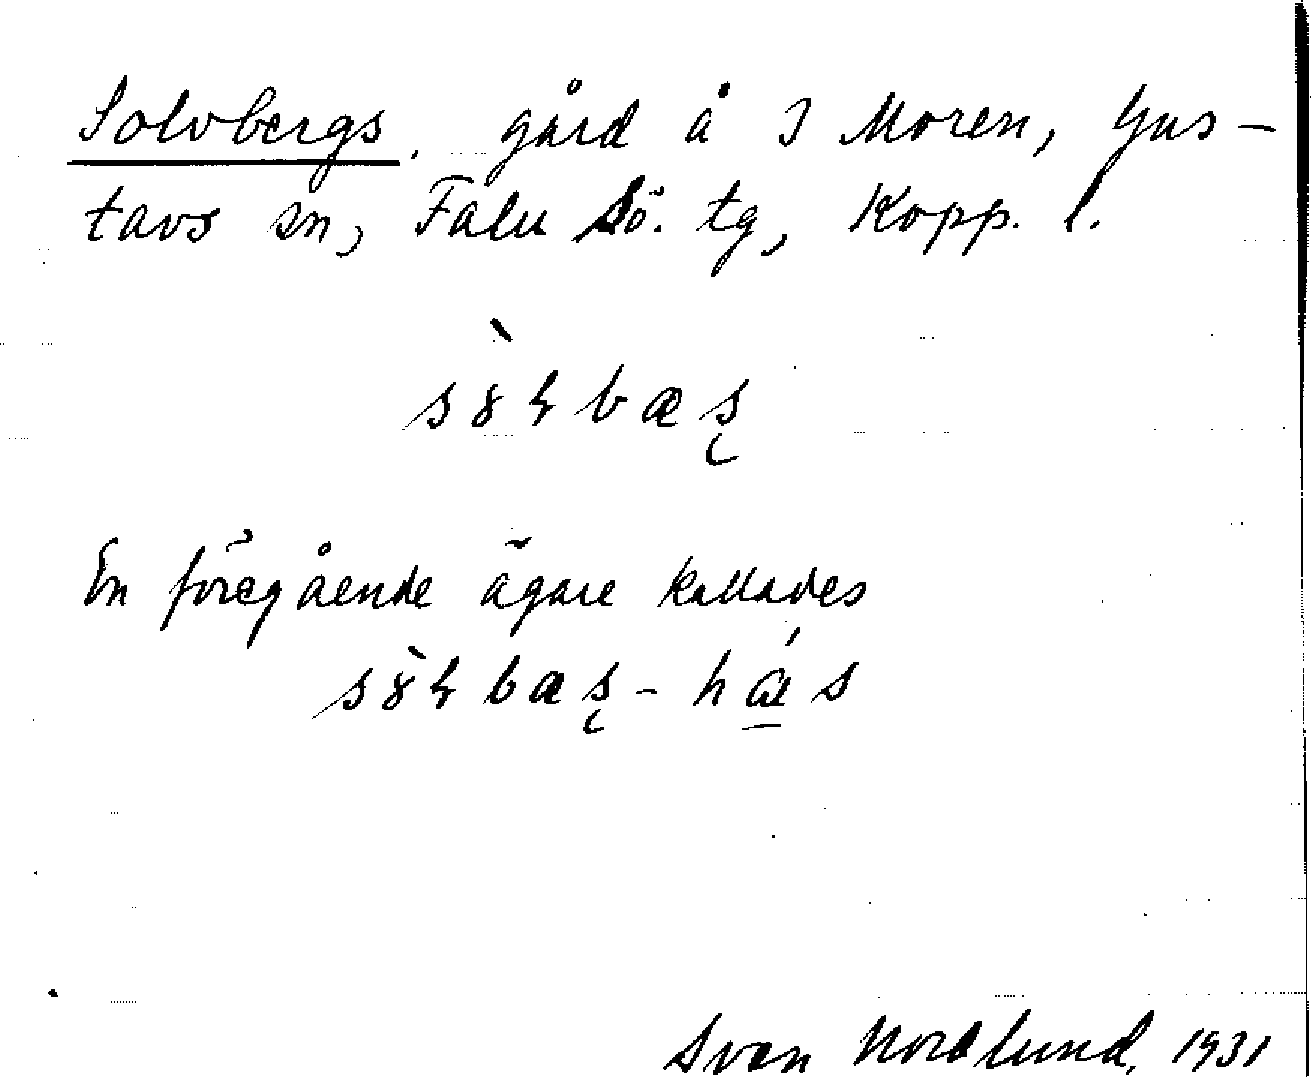 Solvbergs, gård å I Moren, Gus-
tavs sn, Falu Sö. tg, Kopp. l.
En föregående ägare kallades
Sven Nordlund, 1931